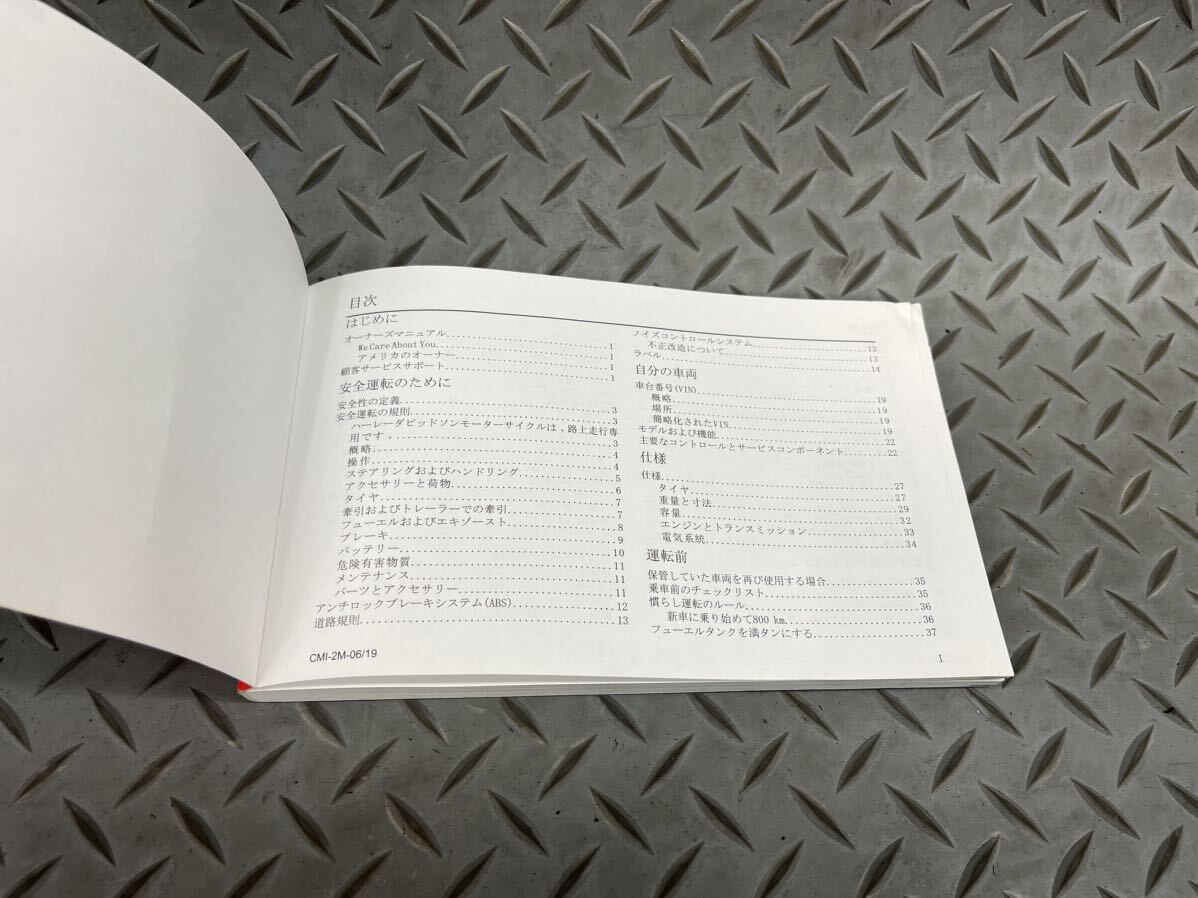 目次
はじめに
オーナーズマニュアル..........1
We Care About You..........1
アメリカのオーナー..........1
顧客サービスサポート..........1
安全運転のために
安全性の定義..........3
安全運転の規則..........3
ハーレーダビッドソンモーターサイクルは、路上走行専
用です。..........3
概略..........4
操作..........4
ステアリングおよびハンドリング..........5
アクセサリーと荷物..........6
タイヤ..........7
牽引およびトレーラーでの牽引..........7
フューエルおよびエキゾースト..........8
ブレーキ..........9
バッテリー..........10
危険有害物質..........11
メンテナンス..........11
パーツとアクセサリー..........11
アンチロックブレーキシステム(ABS)..........12
道路規則..........13
CMI-2M-06/19
ノイズコントロールシステム..........13
不正改造について..........13
ラベル..........14
自分の車両
車台番号(VIN)..........19
概略..........19
場所..........19
簡略化されたVIN..........19
モデルおよび機能..........22
主要なコントロールとサービスコンポーネント..........22
仕様
仕様..........27
タイヤ..........27
重量と寸法..........29
容量..........32
エンジンとトランスミッション..........33
電気系統..........34
運転前
保管していた車両を再び使用する場合..........35
乗車前のチェックリスト..........35
慣らし運転のルール..........36
新車に乗り始めて800 km..........36
フューエルタンクを満タンにする..........37
I